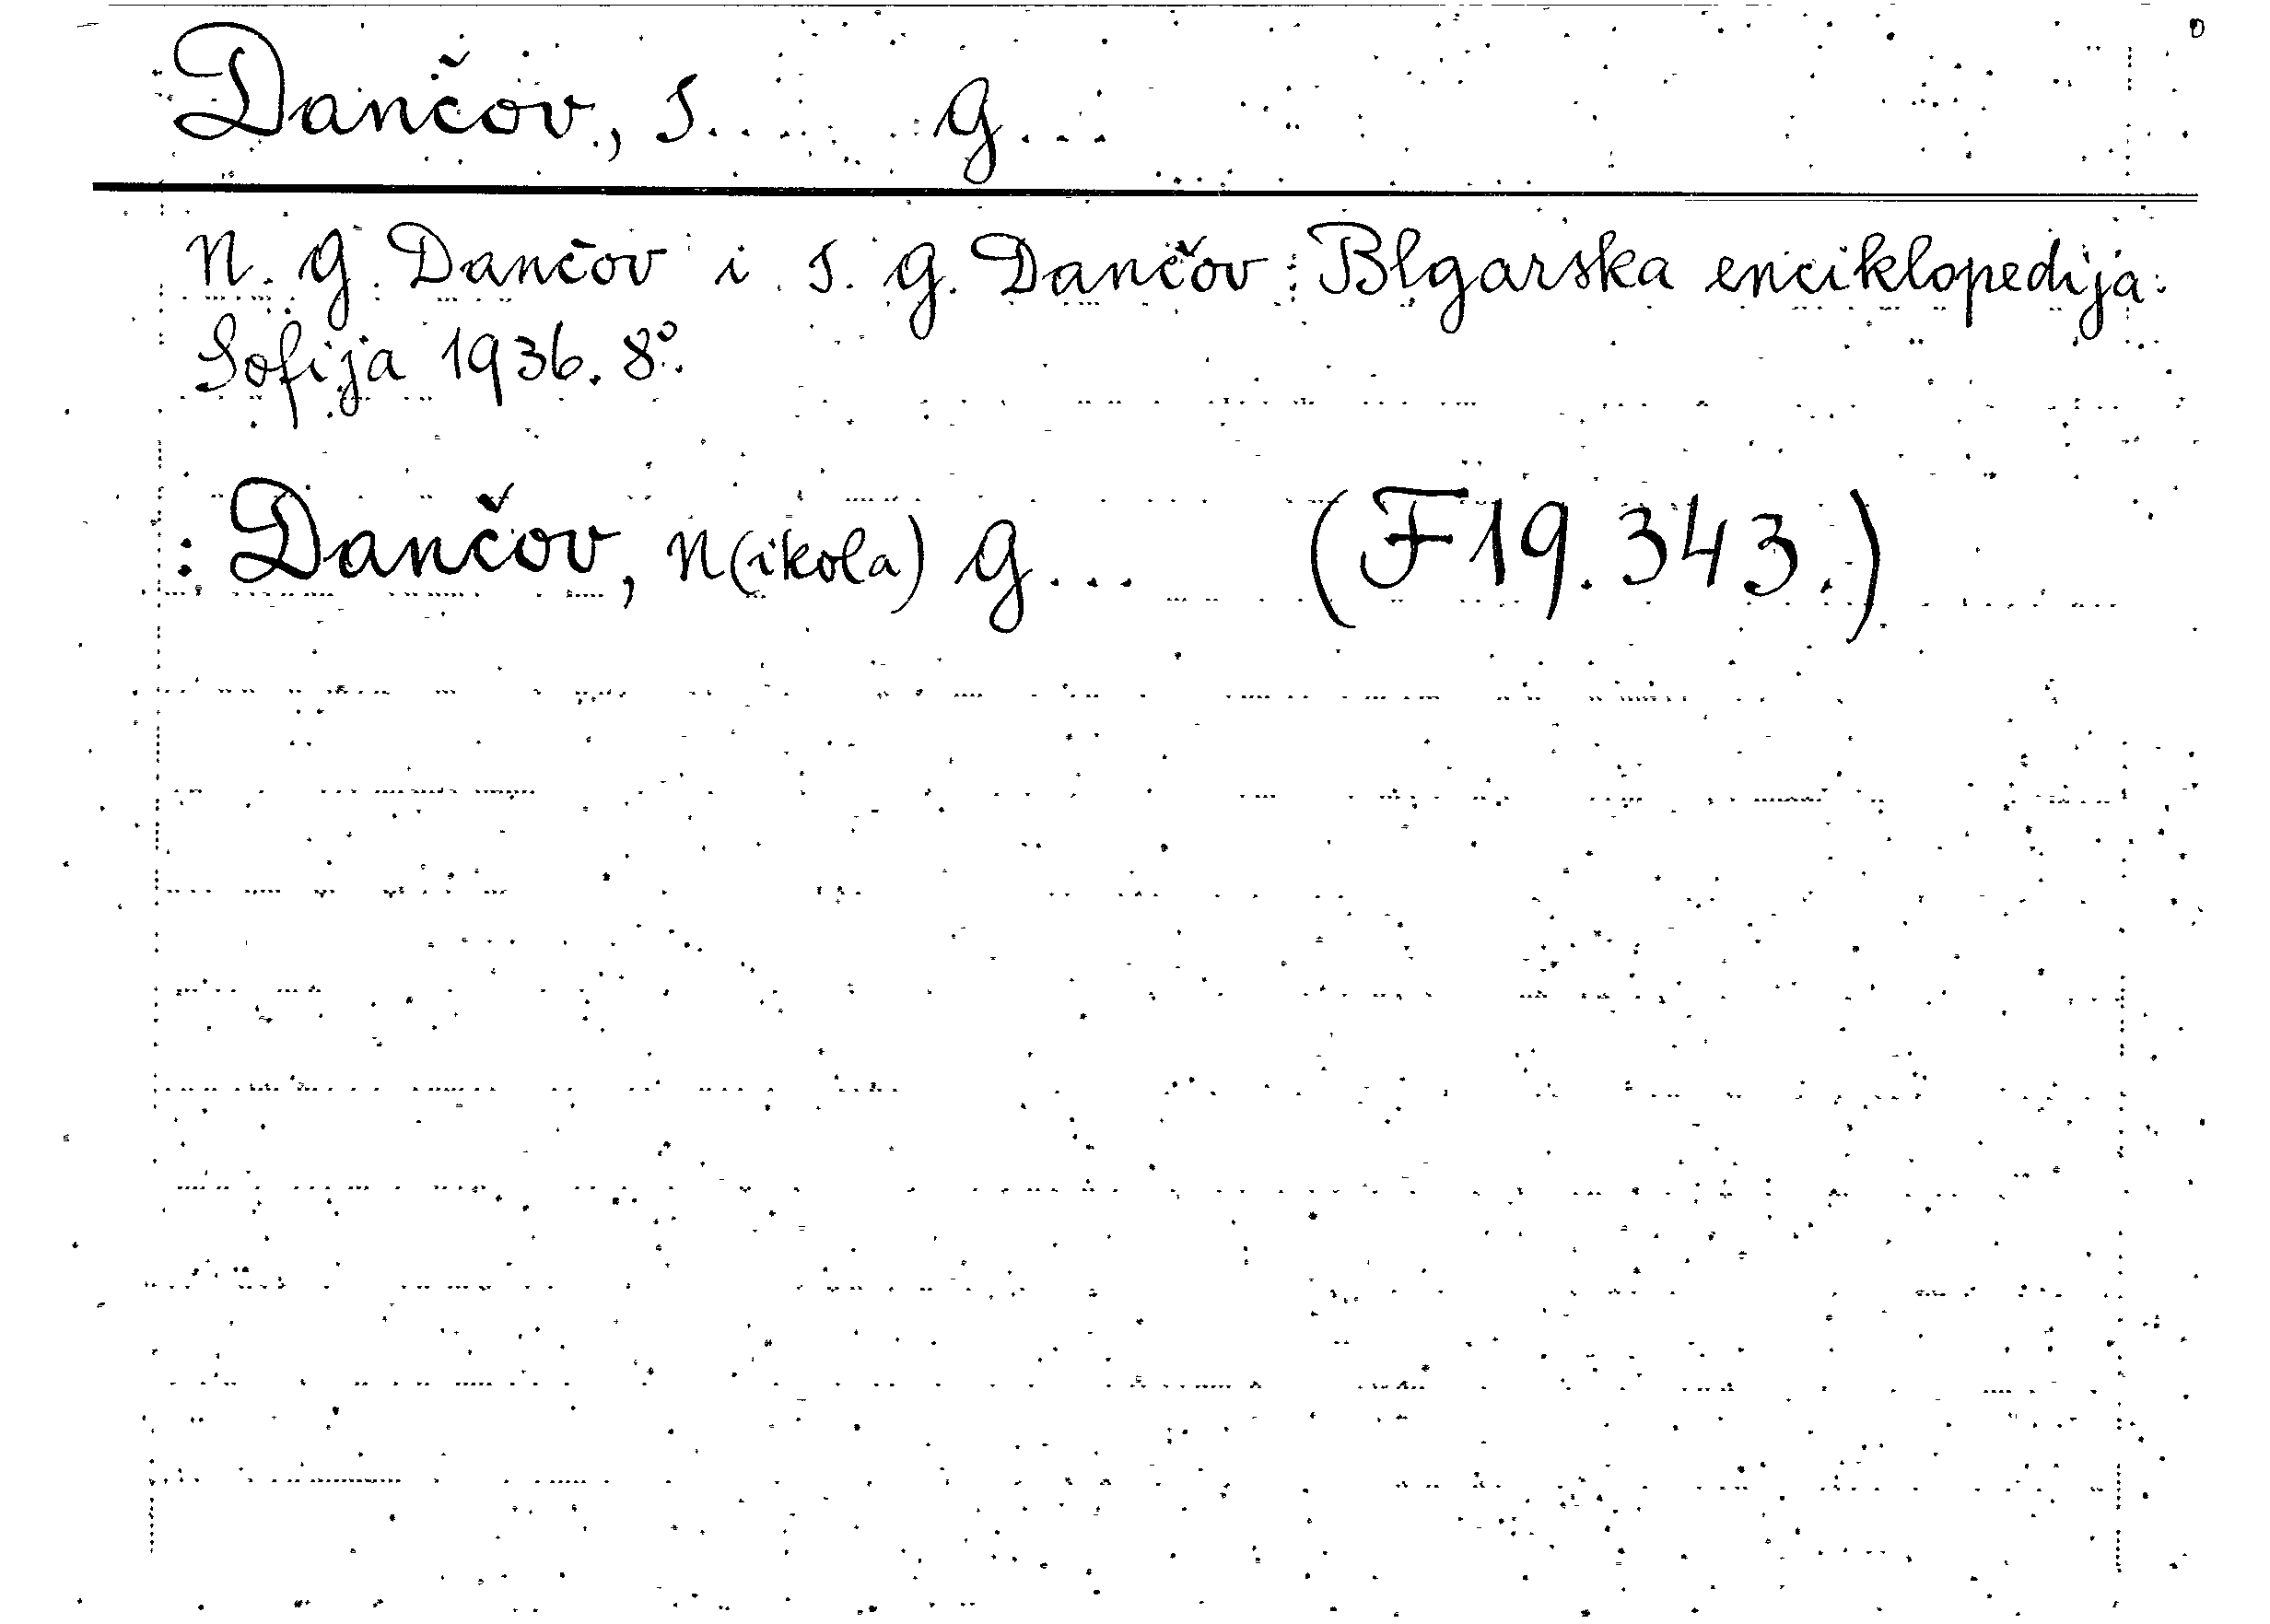 Dančov, S... G...
N. G. Dančov i S. G. Dančov: Blgarska enciklopedija.
Sofija 1936. 8°.
: Dančov, N(ikola) G... (F19.343.)